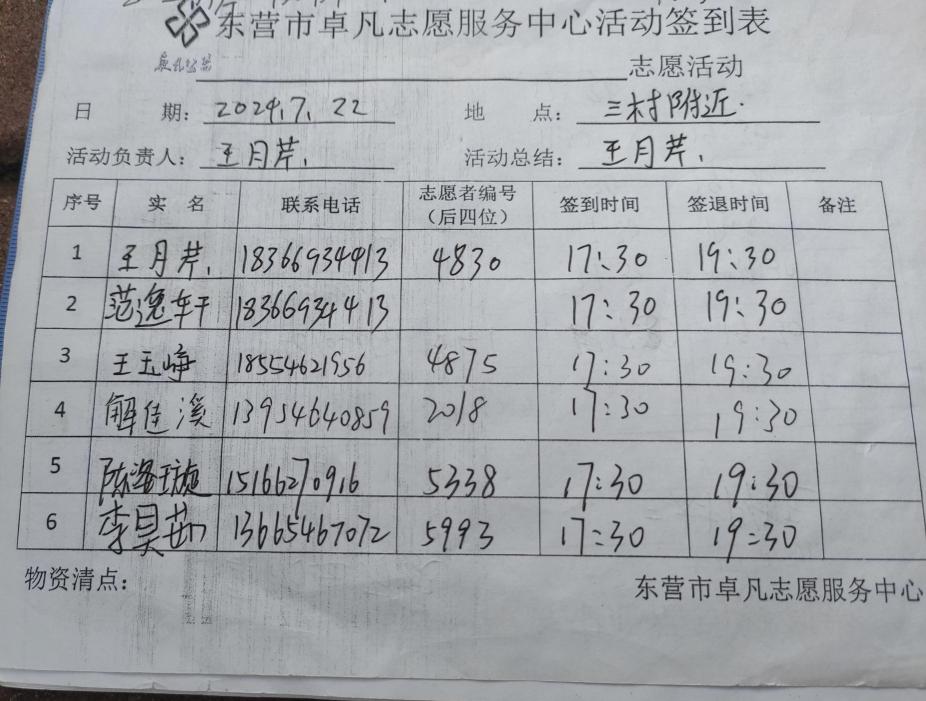 东营市卓凡志愿服务中心活动签到表
志愿活动
日 期: 2024.7.22 地 点: 三村附近.
活动负责人: 王月芹. 活动总结: 王月芹.
序号 实 名 联系电话 志愿者编号（后四位） 签到时间 签退时间 备注
1 王月芹. 18366934413 4830 17:30 19:30
2 范逸轩 18366934413 17:30 19:30
3 王玉峥 18554621956 4875 17:30 19:30
4 解佳溪 13954640859 2018 17:30 19:30
5 陈璇 15166270916 5338 17:30 19:30
6 李昊茹 13665467072 5993 17:30 19:30
物资清点: 东营市卓凡志愿服务中心